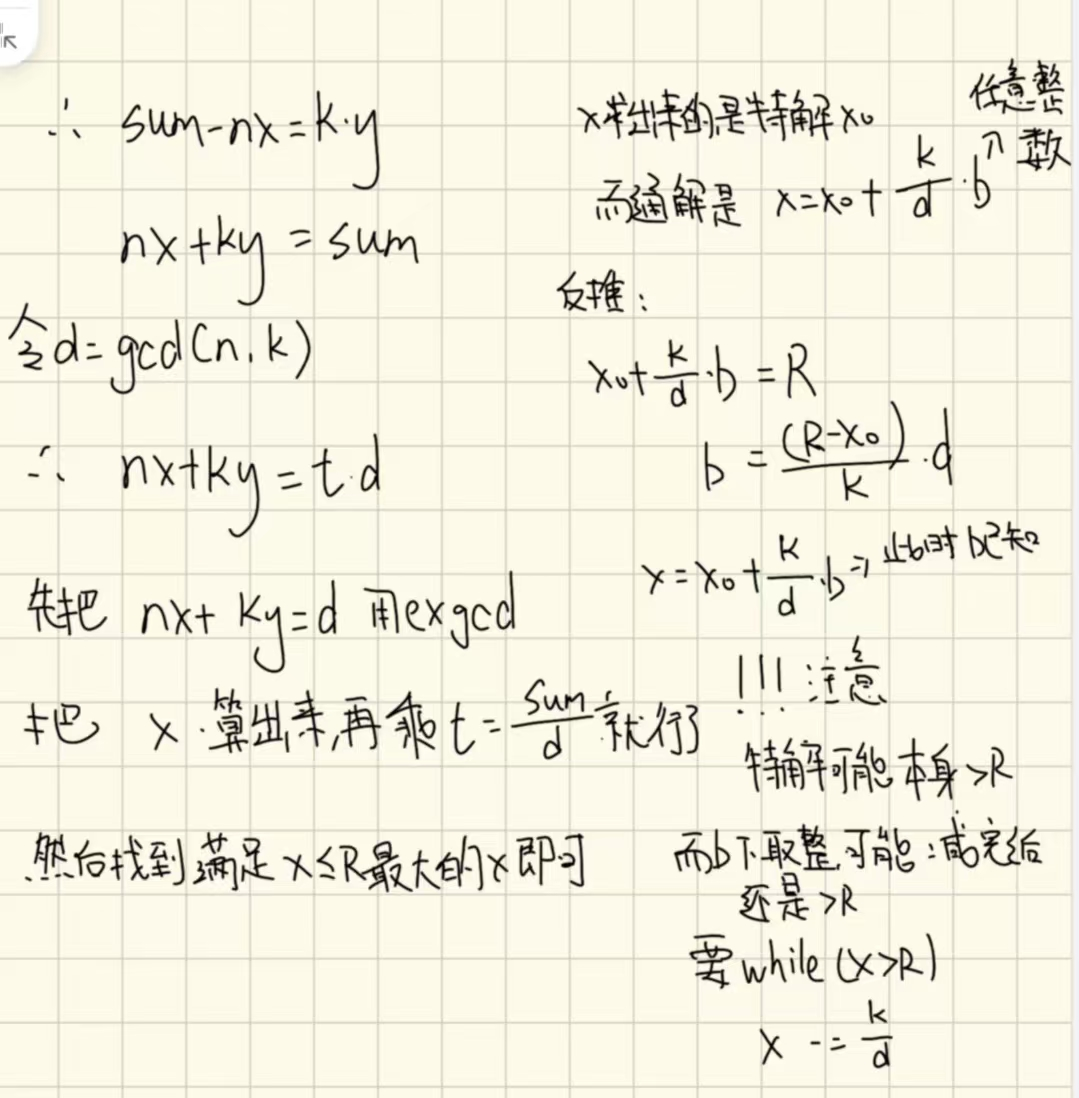 ∴ sum-nx=k·y
nx+ky=sum
令d=gcd(n,k)
∴ nx+ky=t·d
先把 nx+ky=d 用exgcd
把 x 算出来,再乘t=\frac{sum}{d}就行了
然后找到满足x≤R最大的x即可
x求出来的是特解x₀
任意整数
而通解是 x=x₀+\frac{k}{d}·b
反推:
x₀+\frac{k}{d}·b=R
b=\frac{(R-x₀)}{k}·d
x=x₀+\frac{k}{d}·b⇒此时b已知
!!!注意
特解可能本身>R
而b下取整,可能:减完后
还是>R
要while(x>R)
x -= \frac{k}{d}